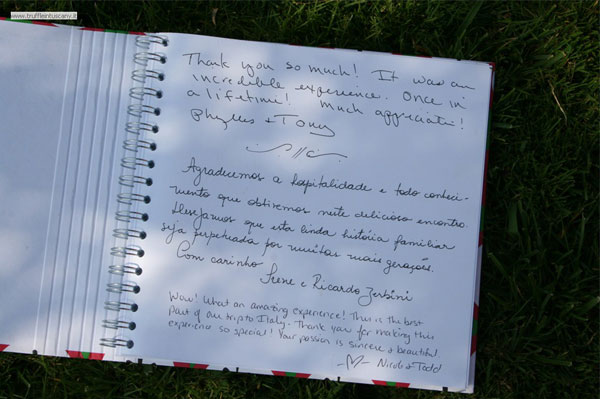 www.truffleintuscany.it
Thank you so much! It was an
incredible experience. Once in
a lifetime! Much appreciati!
Phyllis + Tony
Agradecemos a hospitalidade e todo conheci-
mento que obtivemos neste delicioso encontro.
Desejamos que esta linda história familiar
seja perpetuada por muitas mais gerações.
Com carinho Irene e Ricardo Zerbini
Wow! What an amazing experience! This is the best
part of our trip to Italy. Thank you for making this
experience so special! Your passion is sincere & beautiful.
Nicole & Todd